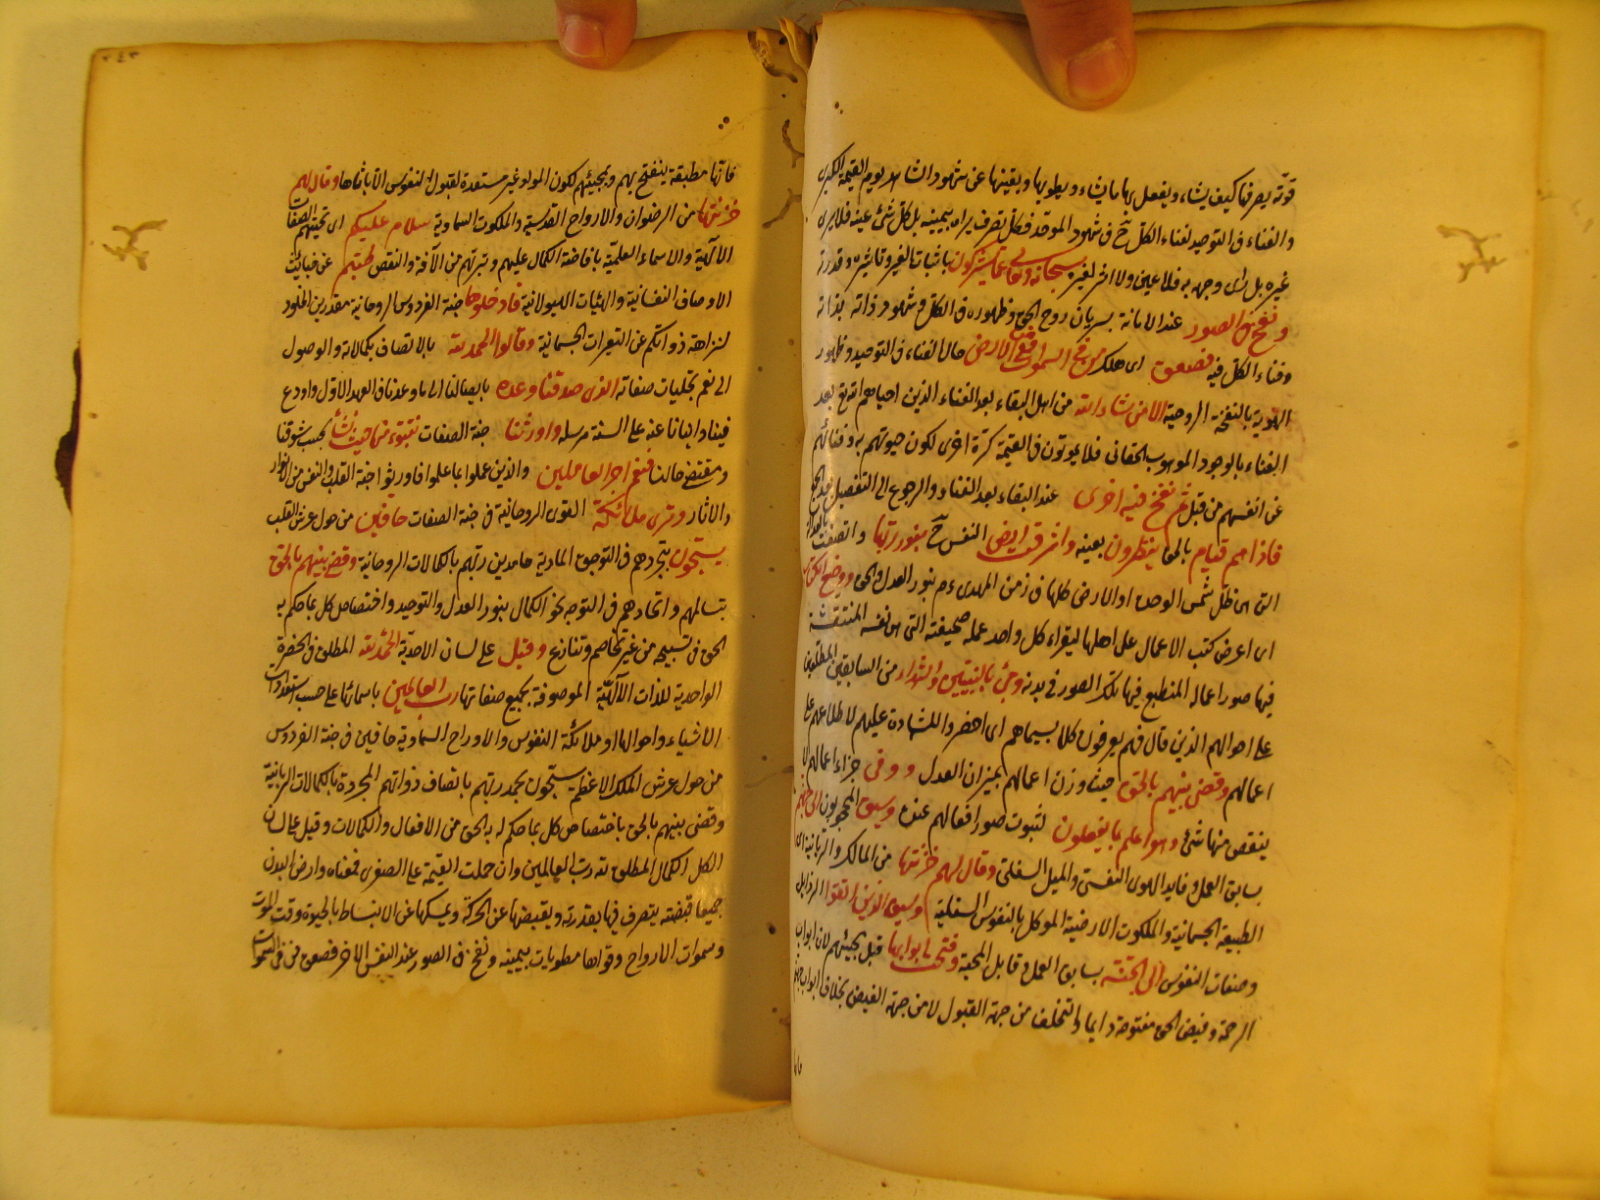 قوته يصرفها كيف يشاء ويفعل بها ما يشاء ويطويها ويفنيها عن شهود الشاهد يوم القيمة الكبرى
والفناء فى التوحيد لفناء الكل ح فى شهود الموحد فكل تصرف يراه بيمينه بل كل شئ عينه فلا يرى
غيره بل يرى وجهه به فلا عين ولا اثر لغيره سبحانه وتعالى عما يشركون باثبات الغير وتاثيره وقدرته
ونفخ فى الصور عند الاماتة بسريان روح الحق وظهوره فى الكل وشهود ذاته بذاته
وفناء الكل فيه فصعق اى هلك من فى السموات ومن فى الارض حال الفناء فى التوحيد وظهور
الهوية بالنفخة الروحية الا من شاء الله من اهل البقاء بعد الفناء الذين احياهم الله تع بعد
الفناء بالوجود الموهوب الحقانى فلا يموتون فى القيمة كرة اخرى لكون حيوتهم به وفنائهم
عن انفسهم من قبل ثم نفخ فيه اخرى عند البقاء بعد الفناء والرجوع الى التفصيل بعد الجمع
فاذا هم قيام بالحق ينظرون بعينه واشرقت الارض النفس ح بنور ربها واتصفت بالعدالة
التى هى ظل شمس الوحدة او الارض كلها فى زمن المهدى ع م بنور العدل والحق ووضع الكتاب
اى اعرض كتب الاعمال على اهلها ليقراء كل واحد عمله صحيفته التى هى نفسه المنتقشة
فيها صور اعماله المنطبع فيها تلك الصور فى بدنه وجئ بالنبيين والشهداء من السابقين المطلعين
على احوالهم الذين قال فيهم يعرفون كلا بسيماهم اى احضروا للشهادة عليهم لاطلاعهم على
اعمالهم وقضى بينهم بالحق حيث وزن اعمالهم بميزان العدل ووفى جزاء اعمالهم لا
ينقص منها شئ وهو اعلم بما يفعلون لثبوت صور افعالهم عنده وسيق المحجوبون الى جهنم
بسابق العمل وقايد الهوى النفسى والميل السفلى وقال لهم خزنتها من المالك والزبانية اى
الطبيعة الجسمانية والملكوت الارضية الموكل بالنفوس السفلية وسيق الذين اتقوا الرذايل
وصفات النفوس الى الجنة بسابق العمل وقايد المحبة وفتحت ابوابها قبل مجيئهم لان ابواب
الرحمة وفيض الحق مفتوحة دايما والتخلف من جهة القبول لا من جهة الفيض بخلاف ابواب جهنم
فانها
٢٤٣
فانها مطبقة ينفتح بهم وبمجيئهم لكون المواد غير مستعدة لقبول النفوس الا باثارها وقال لهم
خزنتها من الرضوان والارواح القدسية والملكوت السماوية سلام عليكم اى تحيتهم الصفات
الالهية والاسماء العلمية بافاضة الكمال عليهم وتبرئتهم من الآفة والنقص طبتم عن خبائث
الاوصاف النفسانية والهيئات الهيولانية فادخلوها جنة الفردوس الروحانية مقدرين الخلود
لنزاهة ذواتكم عن التغيرات الجسمانية وقالوا الحمد لله بالاتصاف بكمالاته والوصول
الى نعم تجليات صفاته الذى صدقنا وعده بايصالنا الى ما وعدنا فى العهد الاول واودع
فينا وانبانا عنه على السنة مرسله واورثنا جنة الصفات نتبوء منها حيث نشاء بحسب شوقنا
ومقتضى حالنا فنعم اجر العاملين والذين عملوا بما علموا فاورثوا جنة القلب والنفس من الانوار
والاثار وترى ملائكة القوى الروحانية فى جنة الصفات حافين من حول عرش القلب
يسبحون بتجردهم فى التوجه المادية حامدين ربهم بالكمالات الروحانية وقضى بينهم بالحق
بتسالمهم واتحادهم فى التوجه نحو الكمال بنور العدل والتوحيد واختصاص كل بما حكم به
الحق فى تسبيحه من غير تخاصم وتنازع وقيل على لسان الاحدية الحمد لله المطلق فى الحضرة
الواحدية للذات الالهية الموصوفة بجميع صفاتها رب العالمين باسمائها على حسب استعدادات
الاشياء واحوالها او ملائكة النفوس والارواح السماوية حافين فى جنة الفردوس
من حول عرش الملك الاعظم يسبحون بحمد ربهم باتصاف ذواتهم المجردة بالكمالات الربانية
وقضى بينهم بالحق باختصاص كل بما حكم له به الحق من الافعال والكمالات وقيل على لسان
الكل الكمال المطلق لله رب العالمين وان حملت القيمة على الصغرى فمعناه وارض البدن
جميعا قبضته يتصرف فيها بقدرته ويقبضها عن الحركة ويمسكها عن الانبساط بالحيوة وقت الموت
وسموات الارواح وقواها مطويات بيمينه ونفخ فى الصور عند النفس الاخر فصعق من فى السموات